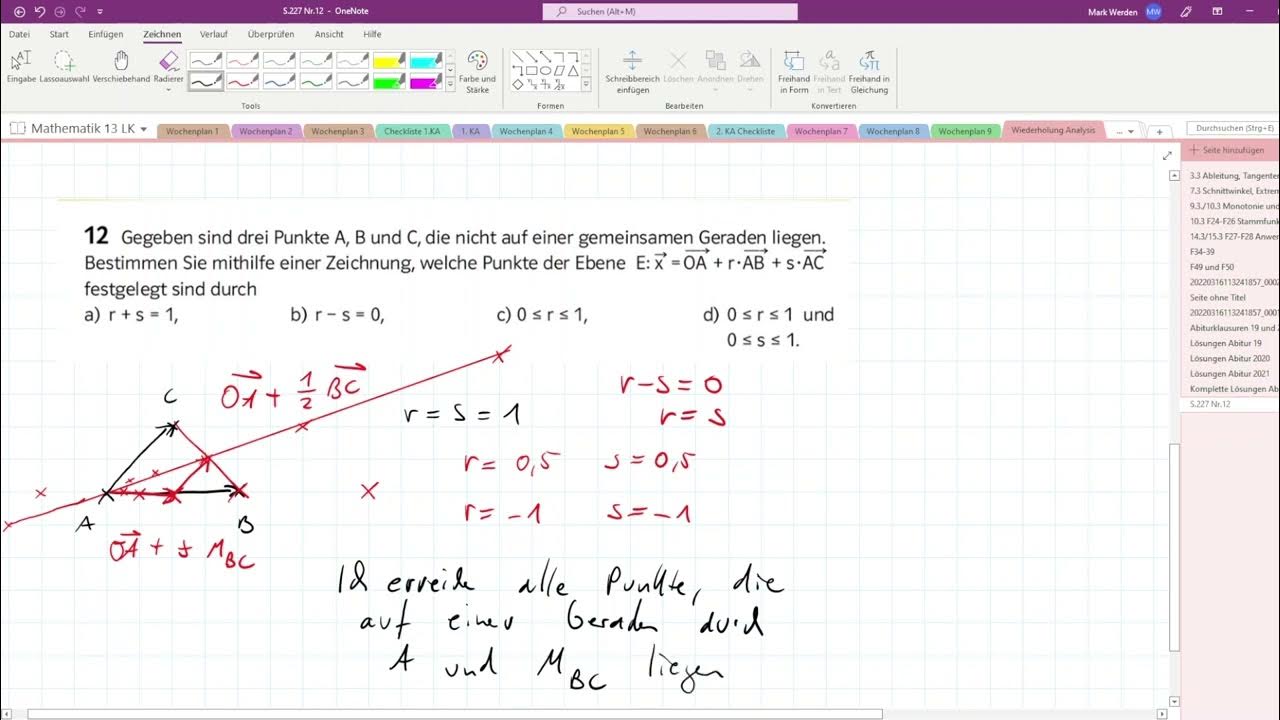 S.227 Nr.12 - OneNote
Suchen (Alt+M)
Mark Werden
MW
Datei Start Einfügen Zeichnen Verlauf Überprüfen Ansicht Hilfe
Eingabe Lassoauswahl Verschiebehand Radierer
Farbe und Stärke
Schreibbereich einfügen
Löschen Anordnen Drehen
Freihand in Form
Freihand in Text
Freihand in Gleichung
Tools Formen Bearbeiten Konvertieren
Mathematik 13 LK
Wochenplan 1 Wochenplan 2 Wochenplan 3 Checkliste 1.KA 1. KA Wochenplan 4 Wochenplan 5 Wochenplan 6 2. KA Checkliste Wochenplan 7 Wochenplan 8 Wochenplan 9 Wiederholung Analysis ...
Durchsuchen (Strg+E)
Seite hinzufügen
3.3 Ableitung, Tangenter
7.3 Schnittwinkel, Extrem
9.3./10.3 Monotonie und
10.3 F24-F26 Stammfunk
14.3/15.3 F27-F28 Anwer
F34-39
F49 und F50
20220316113241857_0002
Seite ohne Titel
20220316113241857_0001
Abiturklausuren 19 und 2
Lösungen Abitur 19
Lösungen Abitur 2020
Lösungen Abitur 2021
Komplette Lösungen Ab
S.227 Nr.12
12 Gegeben sind drei Punkte A, B und C, die nicht auf einer gemeinsamen Geraden liegen.
Bestimmen Sie mithilfe einer Zeichnung, welche Punkte der Ebene E: x⃗ = OA⃗ + r·AB⃗ + s·AC⃗
festgelegt sind durch
a) r + s = 1, b) r − s = 0, c) 0 ≤ r ≤ 1, d) 0 ≤ r ≤ 1 und
0 ≤ s ≤ 1.
C
OA⃗ + 1/2 BC⃗
r = s = 1
r - s = 0
r = s
r = 0,5 s = 0,5
r = -1 s = -1
A
B
OA⃗ + s M_BC
Ich erreiche alle Punkte, die
auf einer Geraden durch
A und M_BC liegen